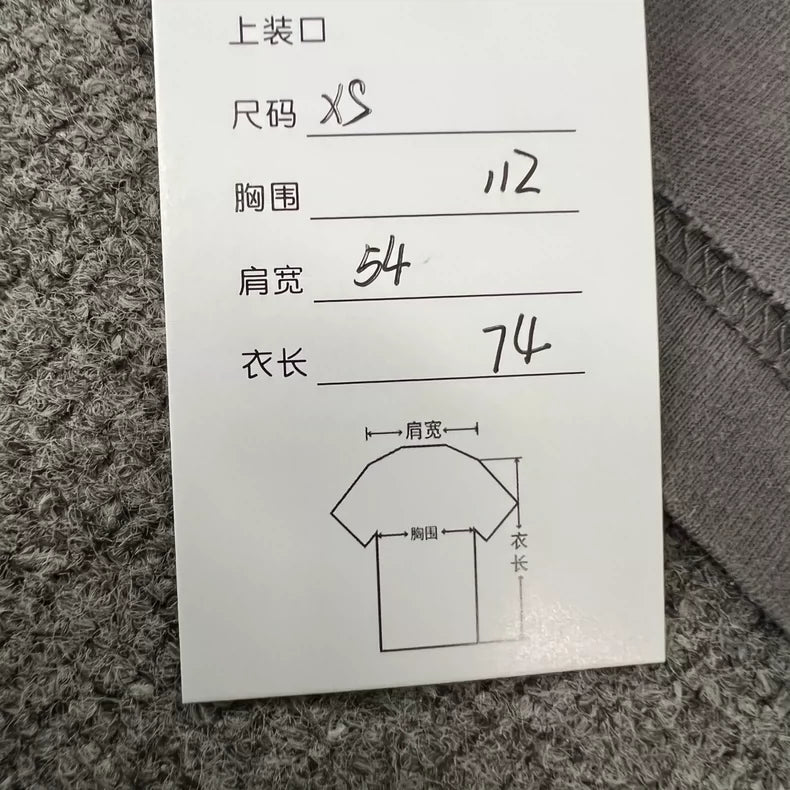 上装口
尺码 XS
胸围 112
肩宽 54
衣长 74
肩宽
胸围
衣长